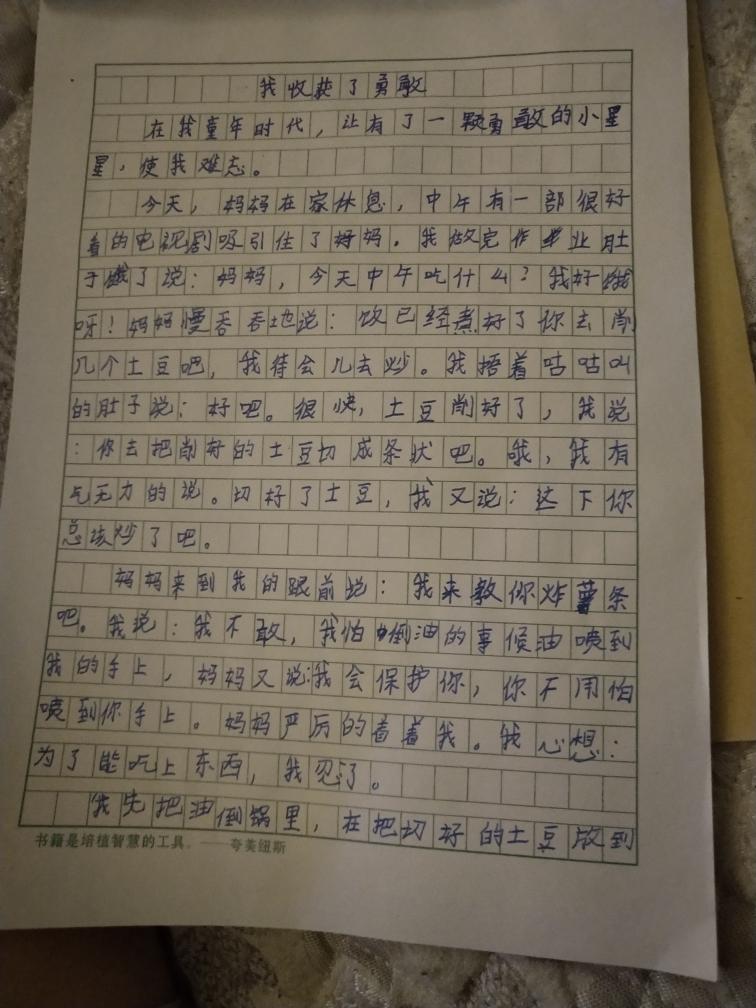 我收获了勇敢
在我童年时代，让有了一颗勇敢的小星
星，使我难忘。
今天，妈妈在家休息，中午有一部很好
看的电视剧吸引住了妈妈。我做完作业肚
子饿了说：妈妈，今天中午吃什么？我好饿
呀！妈妈慢吞吞地说：饭已经煮好了你去削
几个土豆吧，我待会儿去炒。我捂着咕咕叫
的肚子说：好吧。很快，土豆削好了，我说
：你去把削好的土豆切成条状吧。哦，我有
气无力的说。切好了土豆，我又说：这下你
总该炒了吧。
妈妈来到我的跟前说：我来教你炸薯条
吧。我说：我不敢，我怕倒油的事候油喷到
我的手上，妈妈又说：我会保护你，你不用怕
喷到你手上。妈妈严厉的看着我。我心想：
为了能吃上东西，我忍了。
我先把油倒锅里，在把切好的土豆放到
书籍是培植智慧的工具。——夸美纽斯